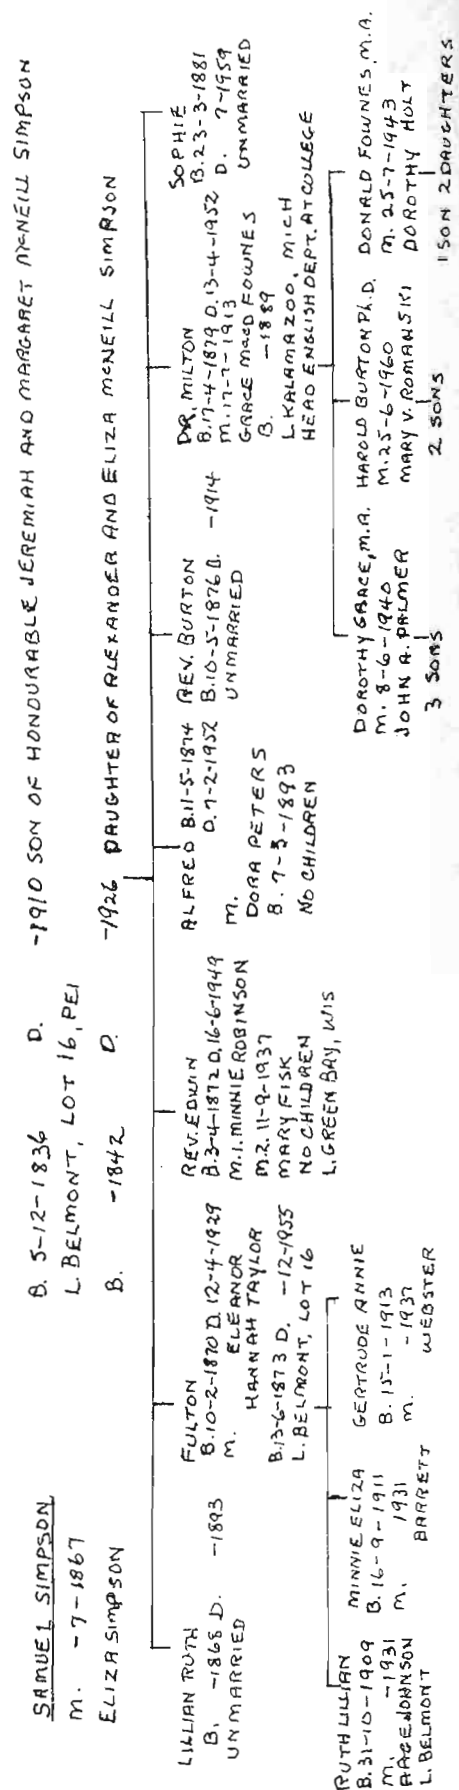 SAMUEL SIMPSON B. 5-12-1836 D. -1910 SON OF HONOURABLE JEREMIAH AND MARGARET McNEILL SIMPSON
M. -7-1867 L. BELMONT, LOT 16, PEI
ELIZA SIMPSON B. -1842 D. -1926 DAUGHTER OF ALEXANDER AND ELIZA McNEILL SIMPSON
LILLIAN RUTH
B. -1868 D. -1893
UNMARRIED
FULTON
B. 10-2-1870 D. 12-4-1929
M. ELEANOR
HANNAH TAYLOR
B. 13-6-1873 D. -12-1955
L. BELMONT, LOT 16
REV. EDWIN
B. 3-4-1872 D. 16-6-1949
M. 1. MINNIE ROBINSON
M. 2. 11-9-1937
MARY FISK
NO CHILDREN
L. GREEN BAY, WIS
ALFRED B. 11-5-1874
D. 7-2-1952
M.
DORA PETERS
B. 7-3-1893
NO CHILDREN
REV. BURTON
B. 10-5-1876 D. -1914
UNMARRIED
DR. MILTON
B. 17-4-1879 D. 13-4-1952
M. 17-7-1913
GRACE MacD FOWNES
B. -1889
L. KALAMAZOO, MICH
HEAD ENGLISH DEPT. AT COLLEGE
SOPHIE
B. 23-3-1881
D. 7-1959
UNMARRIED
RUTH LILLIAN
B. 31-10-1909
M. -1931
JOHNSON
L. BELMONT
MINNIE ELIZA
B. 16-9-1911
M. 1931
BARRETT
GERTRUDE ANNIE
B. 15-1-1913
M. -1937
WEBSTER
DOROTHY GRACE, M.A.
M. 8-6-1940
JOHN A. PALMER
3 SONS
HAROLD BURTON Ph.D.
M. 25-6-1960
MARY V. ROMANSKI
2 SONS
DONALD FOWNES, M.A.
M. 25-7-1943
DOROTHY HOLT
1 SON 2 DAUGHTERS